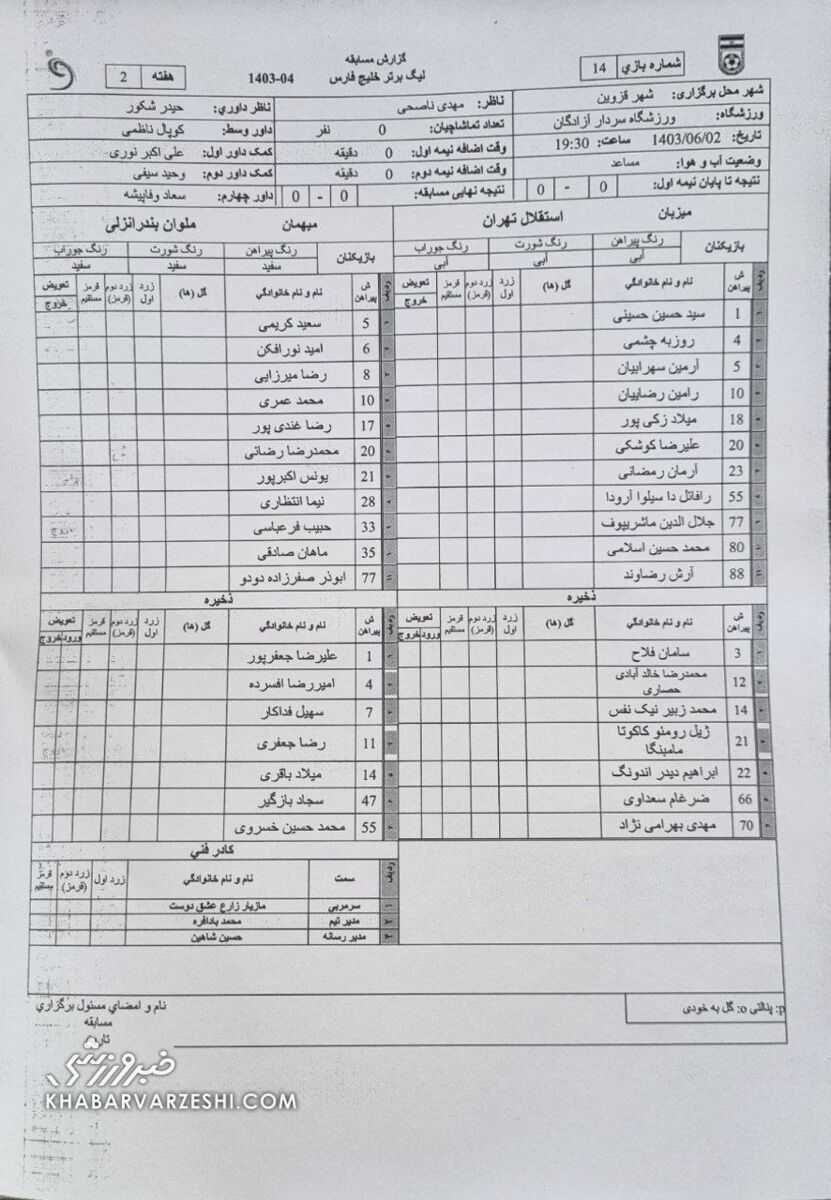 گزارش مسابقه
لیگ برتر خلیج فارس 04-1403
شماره بازي 14
هفته 2
شهر محل برگزاری: شهر قزوین
ورزشگاه: ورزشگاه سردار آزادگان
تاریخ: 1403/06/02 ساعت: 19:30
وضعیت آب و هوا: مساعد
نتیجه تا پایان نیمه اول: 0 - 0
ناظر: مهدی ناصحی
تعداد تماشاچیان: 0 نفر
وقت اضافه نیمه اول: 0 دقیقه
وقت اضافه نیمه دوم: 0 دقیقه
نتیجه نهایی مسابقه: 0 - 0
ناظر داوری: حیدر شکور
داور وسط: کوپال ناظمی
کمک داور اول: علی اکبر نوری
کمک داور دوم: وحید سیفی
داور چهارم: سعاد وفاپیشه
میزبان استقلال تهران
بازیکنان رنگ پیراهن رنگ شورت رنگ جوراب
آبی آبی آبی
ردیف ش پیراهن نام و نام خانوادگي گل (ها) زرد اول زرد دوم (قرمز) قرمز مستقیم تعویض خروج
1 سید حسین حسینی
4 روزبه چشمی
5 آرمین سهرابیان
10 رامین رضاییان
18 میلاد زکی پور
20 علیرضا کوشکی
23 آرمان رمضانی
55 رافائل دا سیلوا آرودا
77 جلال الدین ماشریپوف
80 محمد حسین اسلامی
88 آرش رضاوند
ذخیره
ردیف ش پیراهن نام و نام خانوادگي گل (ها) زرد اول زرد دوم (قرمز) قرمز مستقیم تعویض ورود خروج
3 سامان فلاح
12 محمدرضا خالد آبادی حصاری
14 محمد زبیر نیک نفس
21 ژیل رومئو کاکوتا مامبنگا
22 ابراهیم دیدر اندونگ
66 ضرغام سعداوی
70 مهدی بهرامی نژاد
میهمان ملوان بندرانزلی
بازیکنان رنگ پیراهن رنگ شورت رنگ جوراب
سفید سفید سفید
ردیف ش پیراهن نام و نام خانوادگي گل (ها) زرد اول زرد دوم (قرمز) قرمز مستقیم تعویض خروج
5 سعید کریمی
6 امید نورافکن
8 رضا میرزایی
10 محمد عمری
17 رضا غندی پور
20 محمدرضا رضائی
21 یونس اکبرپور
28 نیما انتظاری
33 حبیب فرعباسی
35 ماهان صادقی
77 ابوذر صفرزاده دودو
ذخیره
ردیف ش پیراهن نام و نام خانوادگي گل (ها) زرد اول زرد دوم (قرمز) قرمز مستقیم تعویض ورود خروج
1 علیرضا جعفرپور
4 امیررضا افسرده
7 سهیل فداکار
11 رضا جعفری
14 میلاد باقری
47 سجاد بازگیر
55 محمد حسین خسروی
کادر فني
ردیف سمت نام و نام خانوادگي زرد اول زرد دوم (قرمز) قرمز مستقیم
۱ سرمربی مازیار زارع عشق دوست
۲ مدیر تیم محمد بادافره
۳ مدیر رسانه حسین شاهین
p: پنالتی o: گل به خودی
نام و امضاي مسئول برگزاري
مسابقه
خبرورزشی
KHABARVARZESHI.COM